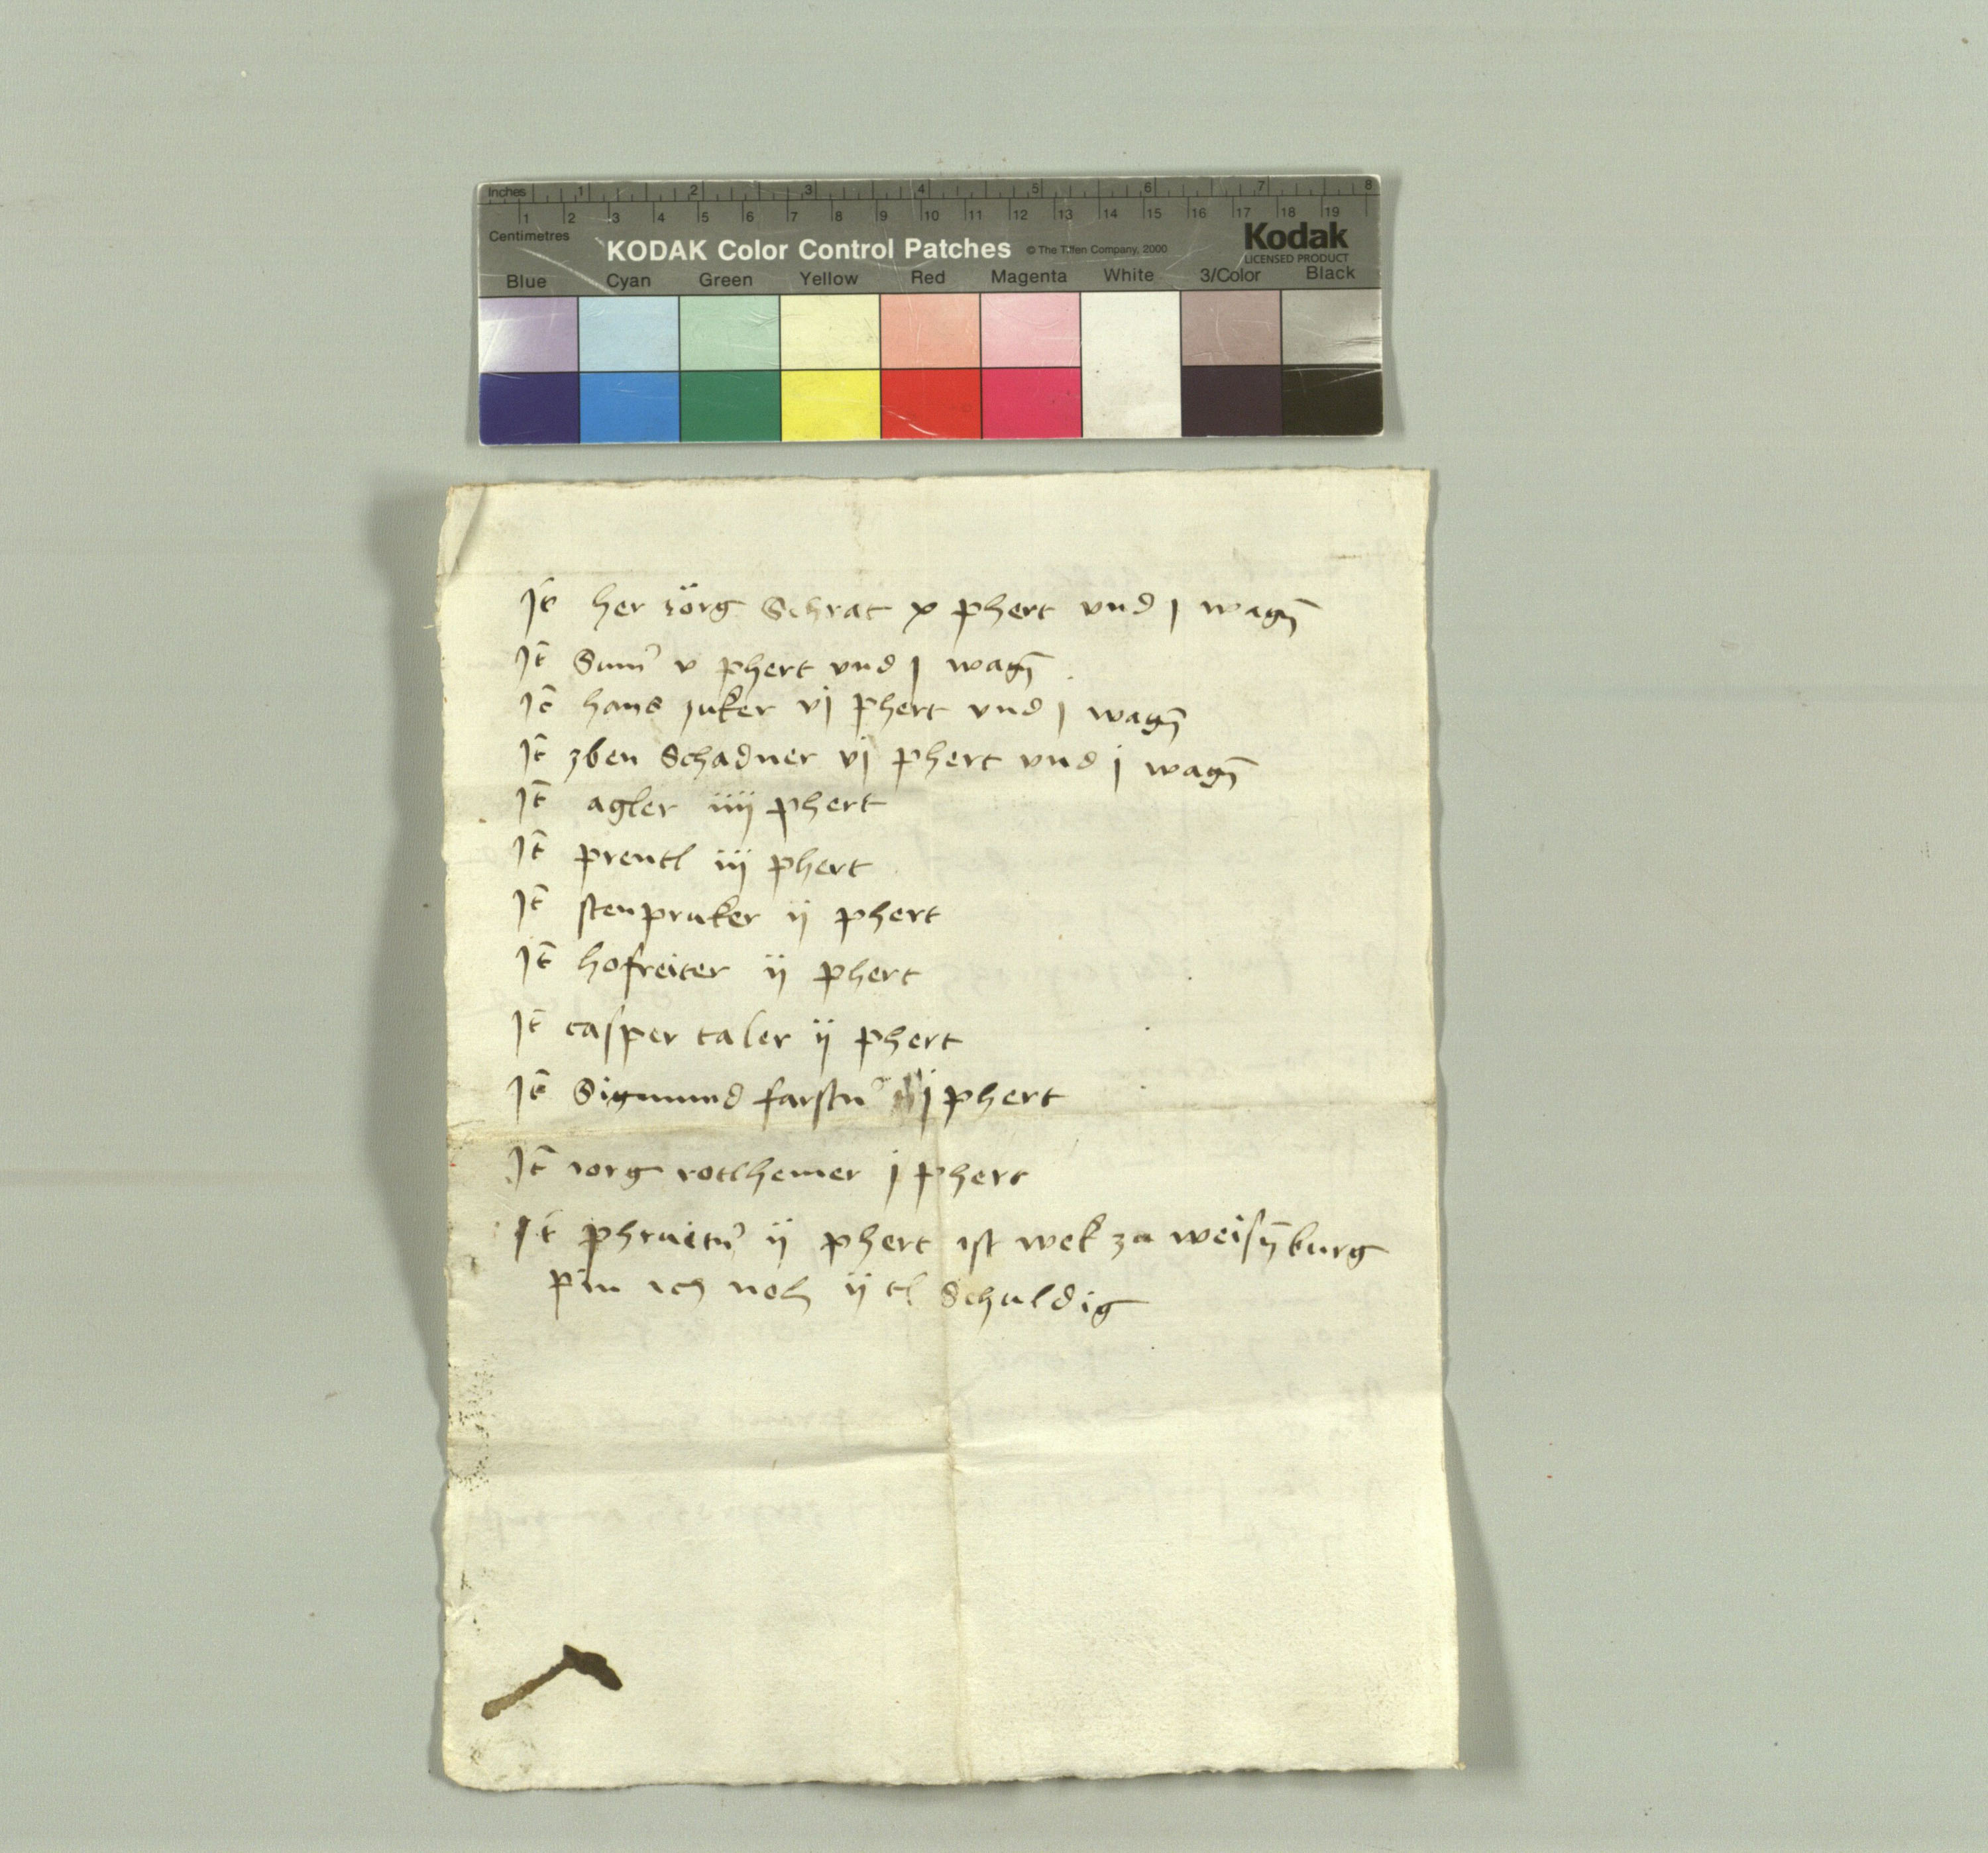 Inches 1 2 3 4 5 6 7 8
1 2 3 4 5 6 7 8 9 10 11 12 13 14 15 16 17 18 19
Centimetres
KODAK Color Control Patches © The Tiffen Company, 2000 Kodak
LICENSED PRODUCT
Blue Cyan Green Yellow Red Magenta White 3/Color Black
Jt̄ her Jörg Schrat x phert vnd j wagn̄
Jt̄ v phert vnd j wagn̄
Jt̄ hans juker vj phert vnd j wagn̄
Jt̄ zben Schadner vj phert vnd j wagn̄
Jt̄ agler iiij phert
Jt̄ prentl iij phert
Jt̄ stenpruker ij phert
Jt̄ hofreiter ij phert
Jt̄ casper taler ij phert
Jt̄ Sigmund j phert
Jt̄ iorg rotlhemer j phert
Jt̄ ij phert ist wek zu weisn̄burg
pin ich noch ij tl Schuldig